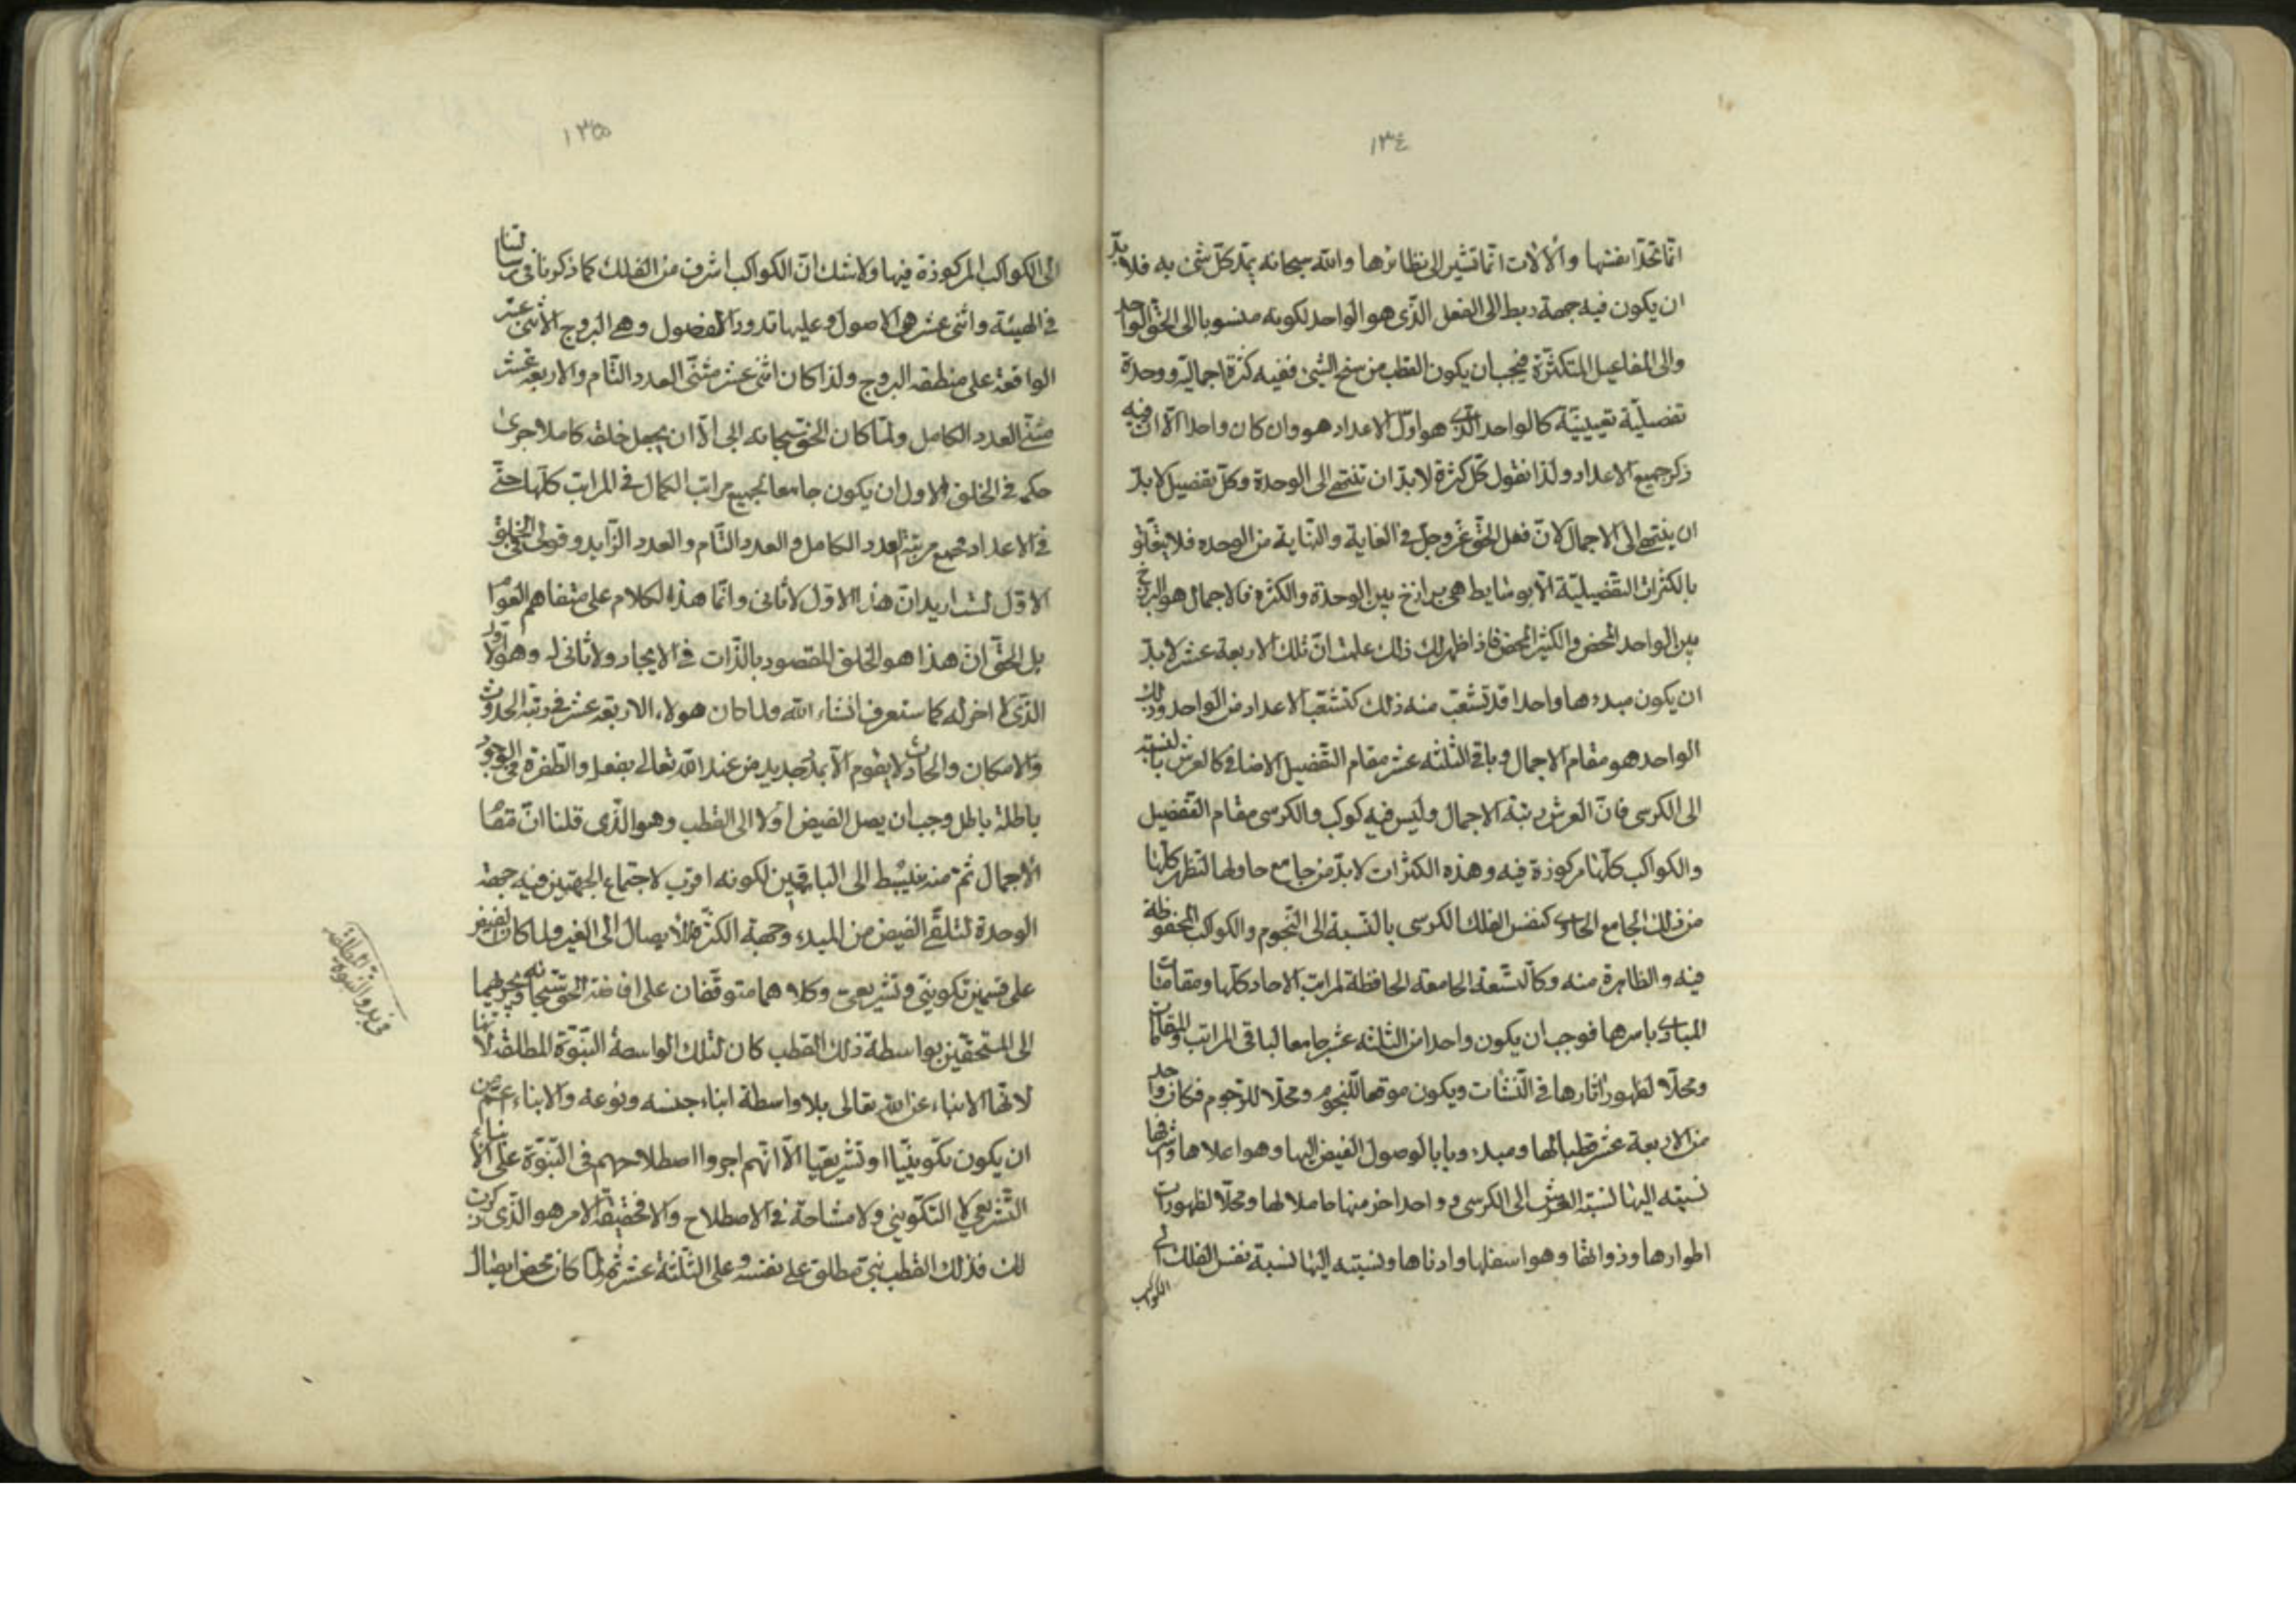 ١٣٤
انما تحد انفسها والآلات انما تشير الى نظائرها والله سبحانه يمد كل شئ به فلا بد
ان يكون فيه جهة ربط الى الفعل الذى هو الواحد لكونه منسوبا الى الحق الواحد
والى المفاعيل المتكثرة فيجب ان يكون القطب من سنخ الشئ ففيه كثرة اجمالية ووحدة
تفصيلية تعيينية كالواحد الذى هو اول الاعداد هو وان كان واحدا الا ان فيه
ذكر جميع الاعداد ولذا نقول كل كثرة لابد ان تنتهى الى الوحدة وكل تفصيل لابد
ان ينتهى الى الاجمال لان فعل الحق عز وجل فى الغاية والنهاية من الوحده فلا يتعلق
بالكثرات التفصيلية الا بوسايط هى برازخ بين الوحدة والكثرة فالاجمال هو البرزخ
بين الواحد المحض والكثير المحض فاذا ظهر لك ذلك علمت ان تلك الاربعة عشر لابد
ان يكون مبدءها واحدا قد تشعب منه ذلك كتشعب الاعداد من الواحد وذلك
الواحد هو مقام الاجمال وباقى الثلثه عشر مقام التفصيل الاضافى كالعرش بالنسبة
الى الكرسى فان العرش رتبة الاجمال وليس فيه كوكب والكرسى مقام التفصيل
والكواكب كلها مركوزة فيه وهذه الكثرات لابد من جامع حاو لها لتظهر كلها
من ذلك الجامع الحاوى كنفس الفلك الكرسى بالنسبة الى النجوم والكواكب المحفوظة
فيه والظاهرة منه وكالتسعة الجامعة الحافظة لمراتب الاحاد كلها ومقامات
المبادى باسرها فوجب ان يكون واحدا من الثلثه عشر جامعا لباقى المراتب والمقامات
ومحلا لظهور اثارها فى النشآت ويكون موقعا للنجوم ومحلا للرجوم فكان واحد
من الاربعة عشر قطبا لها ومبدء وبابا لوصول الفيض اليها وهو اعلاها واشرفها
نسبته اليها نسبة العرش الى الكرسى وواحد اخر منها حاملا لها ومحلا لظهورات
اطوارها وذواتها وهو اسفلها وادناها ونسبته اليها نسبة نفس الفلك الى
الكواكب
١٣٥
الى الكواكب المركوزة فيها ولا شك ان الكواكب اشرف من الفلك كما ذكرنا فى رسالتنا
فى الهيئة واثنى عشر هى الاصول وعليها تدور الفصول وهى البروج الاثنى عشر
الواقعة على منطقة البروج ولذا كان اثنى عشر مثنى العدد التام والاربعة عشر
مثنى العدد الكامل ولما كان الحق سبحانه ابى الا ان يجعل خلقه كاملا جرى
حكمه فى الخلق الاول ان يكون جامعا لجميع مراتب الكمال فى المراتب كلها حتى
فى الاعداد فجمع مرتبة العدد الكامل والعدد التام والعدد الزايد وقولى فى الخلق
الاول لست اريد ان هذا الاول لا ثانى وانما هذا الكلام على متفاهم العوام
بل الحق ان هذا هو الخلق المقصود بالذات فى الايجاد ولا ثانى له وهو الاول
الذى لا اخر له كما ستعرف انشاء الله ولما كان هولاء الاربعة عشر فى رتبة الحدوث
والامكان والحادث لا يقوم الا بمدد جديد من عند الله تعالى بفعله والطفرة فى الوجود
باطلة باطل وجب ان يصل الفيض اولا الى القطب وهو الذى قلنا ان مقام
الاجمال ثم منه ينبسط الى الباقين لكونه اقرب لاجتماع الجهتين فيه جهة
الوحدة لتلقى الفيض من المبدء وجهة الكثرة للايصال الى الغير ولما كان الفيض
على قسمين تكوينى وتشريعى وكلاهما متوقفان على افاضة الحق سبحانه
الى المستحقين بواسطة ذلك القطب كان لتلك الواسطة النبوة المطلقة
لانها الانباء عن الله تعالى بلا واسطة ابناء جنسه ونوعه والانباء اعم من
ان يكون تكوينيا او تشريعيا الا انهم اجروا اصطلاحهم فى النبوة على الانباء
التشريعى لا التكوينى ولا مشاحة فى الاصطلاح والا فحقيقة الامر هو الذى ذكرت
لك فذلك القطب نبى مطلق على نفسه وعلى الثلثة عشر ثم لما كان محض ايصال